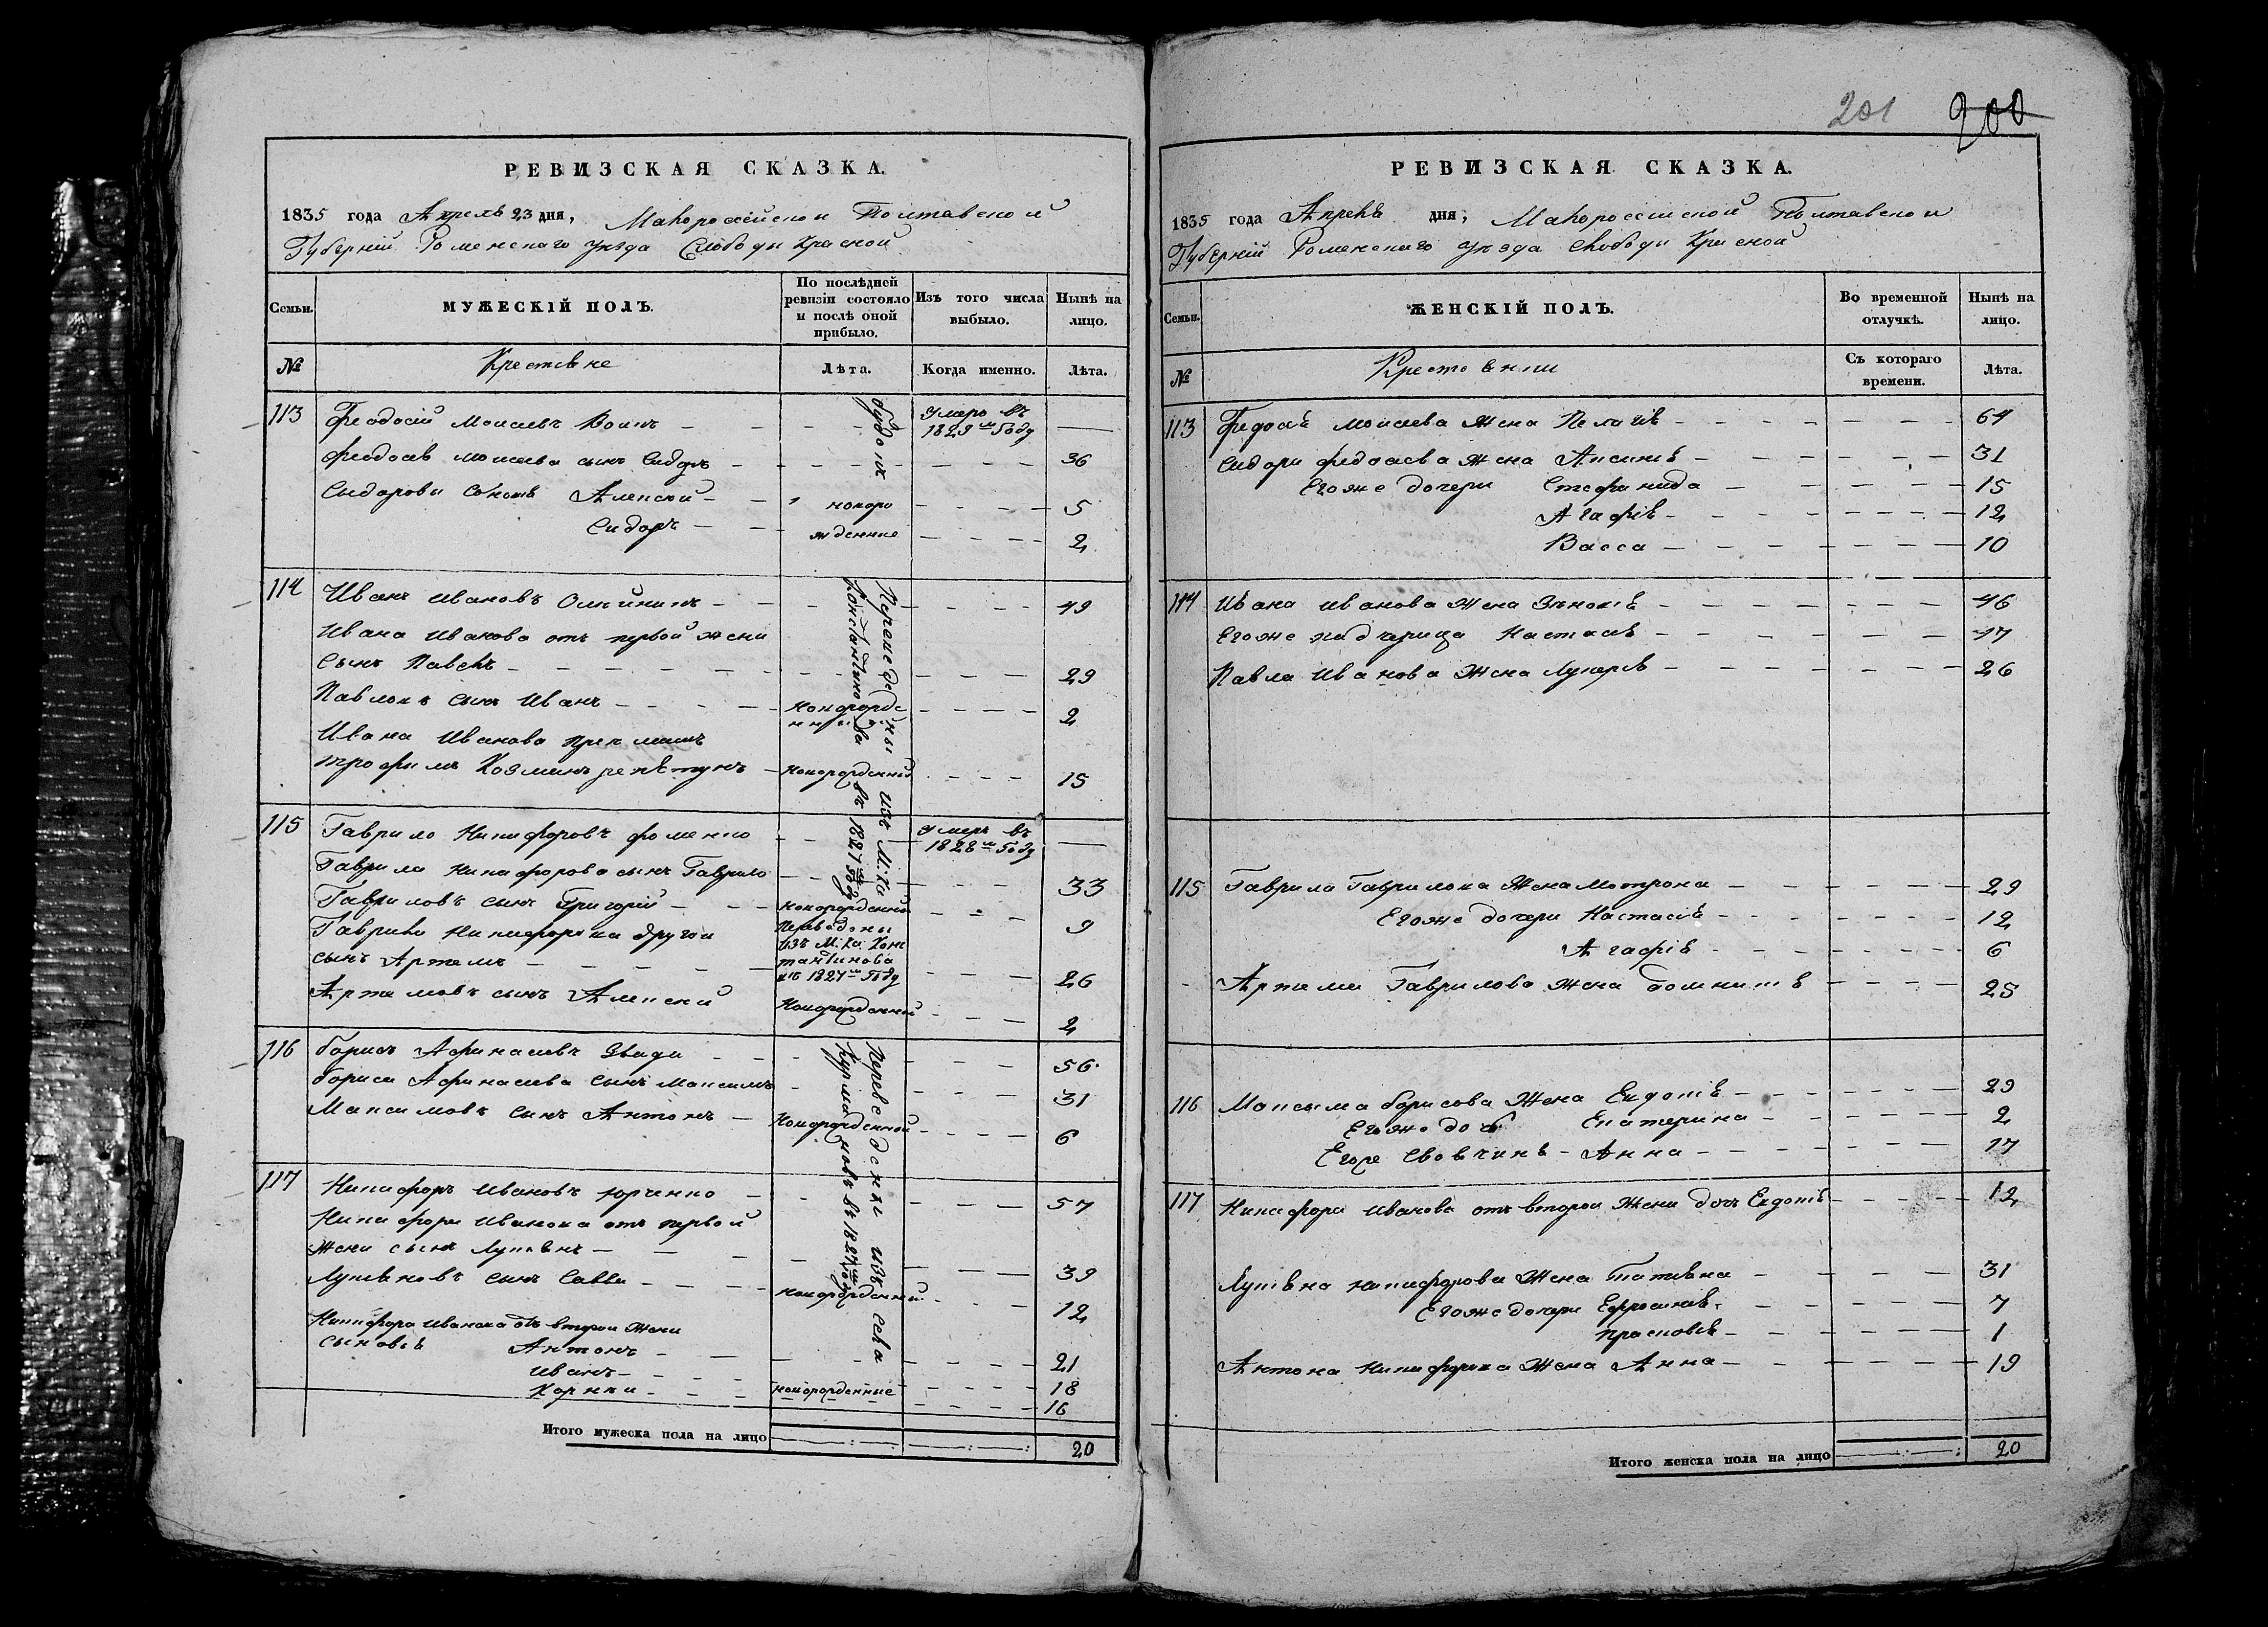 201 200
РЕВИЗСКАЯ СКАЗКА.
1835 года Апрель 23 дня, Малороссійской Полтавской
Губерній Роменского уезда Слободы Красной
Семьи.
МУЖЕСКІЙ ПОЛЪ.
По послѣдней ревизіи состояло и послѣ оной прибыло.
Изъ того числа выбыло.
Нынѣ на лицо.
№
Крестяне
Лѣта.
Когда именно.
Лѣта.
113 Феодосій Моисеевъ
умеръ въ
1829 м Году
Феодосія Моисеева сынъ Сидоръ 36
Сыдорови Алексей 5
новоро
Сидоръ
жденние 2
114 Иванъ Ивановъ Олийникъ 49
Ивана Иванова отъ первой жени
Сынъ Павелъ 29
Павловъ сынъ Иванъ 2
Новорожде
нный
Ивана Иванова
трофимъ Козминъ
Новорожденный 15
Переведены изъ М: Ка
Константинова въ 1827 м году
115 Гаврило Никифоровъ Фоменко
умеръ въ
1828 м Году
Гаврила Никифорова сынъ Гаврило 33
Гавриловъ сынъ Григорій
Новорожденный 9
Гаврила Никифорова другои
сынъ Артемъ 26
Переведены
изъ М: Ка: Конс
тантинова
въ 1827 м Году
Артемовъ сынъ Алексей
Новорожденной 2
116 Борисъ Афанасиевъ 56
Бориса Афанасиева сынъ Максимъ 31
Максимовъ сынъ Антонъ
Новорожденной 6
Переведенни изъ села
117 Никифоръ Ивановъ Юрченко 57
Никифора Иванова отъ первой
Жени сынъ Лукянъ 39
Лукяновъ сынъ Савва
новорожденный 12
Никифора Иванова отъ второи Жени
сыновья Антонъ 21
Иванъ 18
Корней
новорожденные 16
Итого мужеска пола на лицо 20
РЕВИЗСКАЯ СКАЗКА.
1835 года Апреля дня, Малороссийской Полтавскои
Губерній Роменского уезда слободы Красной
Семьи.
ЖЕНСКІЙ ПОЛЪ.
Во временной отлучкѣ.
Нынѣ на лицо.
№
Съ котораго времени.
Лѣта.
113 Федосія Моисеева Жена Пелагія 64
Сидора Федосиева жена Аксинія 31
Егоже дочери Стефанида 15
Агафія 12
Васса 10
114 Ивана Иванова Жена 46
Егоже падчерица Настасія 17
Павла Иванова Жена Лукерія 26
115 Гаврила Гаврилова Жена Мотрона 29
Егоже дочери Настасія 12
Агафія 6
Артема Гаврилова Жена Домникія 25
116 Максыма Борисова Жена Евдокія 29
Егоже дочь Екатерина 2
Анна 17
117 Никифора Иванова отъ второи Жени дочь Евдокія 12
Лукяна Никифорова Жена Татияна 31
Егоже дочери Ефросинія 7
Прасковія 1
Антона Никифорова Жена Анна 19
Итого женска пола на лицо 20